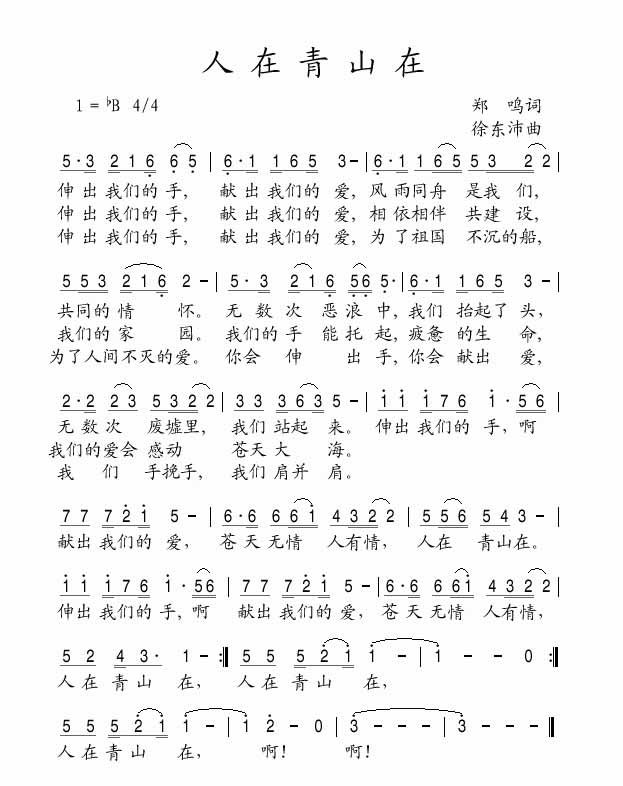 人在青山在
1=♭B 4/4 郑鸣词
徐东沛曲
5·3 216 65 | 6·1 165 3- | 6·1 165 53 22 |
伸出我们的手，献出我们的爱，风雨同舟 是我们，
伸出我们的手，献出我们的爱，相依相伴 共建设，
伸出我们的手，献出我们的爱，为了祖国 不沉的船，
553 216 2- | 5·3 216 56 5· | 6·1 165 3- |
共同的情怀。无数次恶浪中，我们抬起了头，
我们的家园。我们的手能托起，疲惫的生命，
为了人间不灭的爱。你会伸出手，你会献出爱，
2·2 23 5322 | 33 363 5- | 11 176 1·56 |
无数次废墟里，我们站起来。伸出我们的手，啊
我们的爱会感动 苍天大海。
我们手挽手，我们肩并肩。
77 721 5- | 6·6 661 4322 | 556 543- |
献出我们的爱，苍天无情 人有情，人在 青山在。
11 176 1·56 | 77 721 5- | 6·6 661 4322 |
伸出我们的手，啊 献出我们的爱，苍天无情 人有情，
52 43· 1- :‖ 55 521 1- | 1--0 :‖
人在青山在，人在青山在，
55 521 1- | 12-0 | 3--- | 3--- ‖
人在青山在，啊！啊！